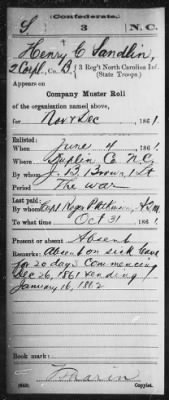 Confederate.
S 3 N.C.
Henry C Sandlin,
2 Corpl, Co. B, 3 Reg't North Carolina Inf.
(State Troops.)
Appears on
Company Muster Roll
of the organization named above,
for Nov & Dec, 1861.
Enlisted:
When June 4, 1861.
Where Duplin Co N.C.
By whom J. B. Brown, 1 Lt
Period The war
Last paid:
By whom Capt Roger P
To what time Oct 31, 1861.
Present or absent Absent
Remarks: Absent on sick leave
for 20 days commencing
Dec 26, 1861 & ending
January 16, 1862
Book mark:
Copyist.